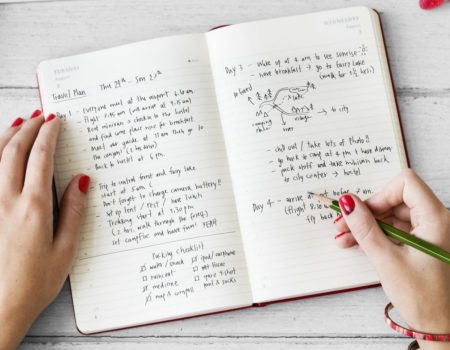 TUESDAY
August
Travel Plan Thu 24th - Sun 27th
Day 1 - Everyone meet at the airport 6.30 am
- Flight 8.05 am (will arrive at 9.15 am)
- Rent minivan > check in to the hostel
and find some place nice for breakfast
- Meet our guide at 11 am then go to
the canyon! (2 hr drive)
- Back to hostel at 6 pm
- Trip to central forest and fairy lake
start at 5 am (
- Don't forget to charge camera battery!!
- Set up tent / rest / have lunch
- Trekking start at 1.30 pm
(2 hrs. walk through the forest)
- set campfire and have fun! YEAH!
Packing Checklist
water / snack
raincoat
medicine
map & compass
ipod / earphone
hat
pant & socks
WEDNESDAY
August
Day 3 - Wake up at 4 am to see sunrise
- have breakfast > go to fairy lake
(walk for 1/2 hrs)
to forest
lake
camping
to city
- chill out / take lots of photo!!
- go back to camp at 4 pm & have dinner
- pack stuff and take minivan back
to city center > hostel
Day 4 - arrive at before 7 am
(flight 8.30
fly back